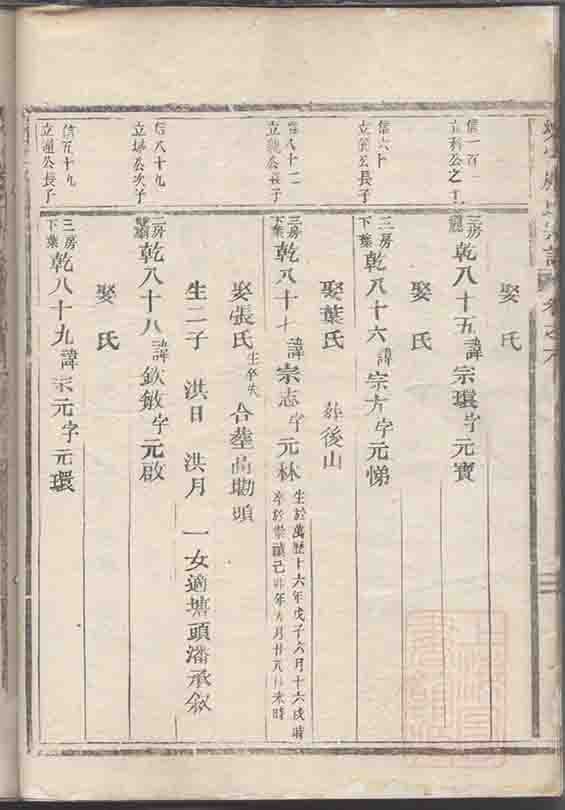 娶氏
信一百二
三房
乾八十五諱宗環字元寶
娶氏
信六十
立公長子
三房下葉
乾八十六諱宗方字元悌
娶葉氏 葬後山
信八十二
立公長子
三房下葉
乾八十七諱崇志字元林
生於萬歷十六年戊子六月十六戌時
卒於崇禎己卯年月廿未時
娶張氏生卒失 合葬高塘頭
生二子 洪日 洪月 一女適塘頭潘承敘
信八十九
立公次子
二房
乾八十八諱欽敏字元啟
娶氏
信五十九
立公長子
三房下葉
乾八十九諱宗元字元環